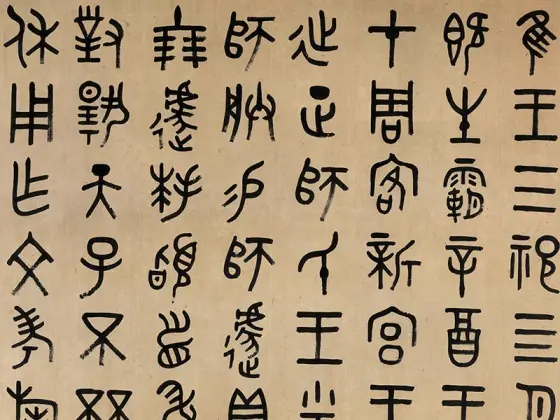 隹王三祀四月
既生霸辛酉王
才周客新宮王
𢓊正師氏王乎
師朕易師遽貝
十朋遽拜𩒨首敢
對揚天子不
休用乍文考